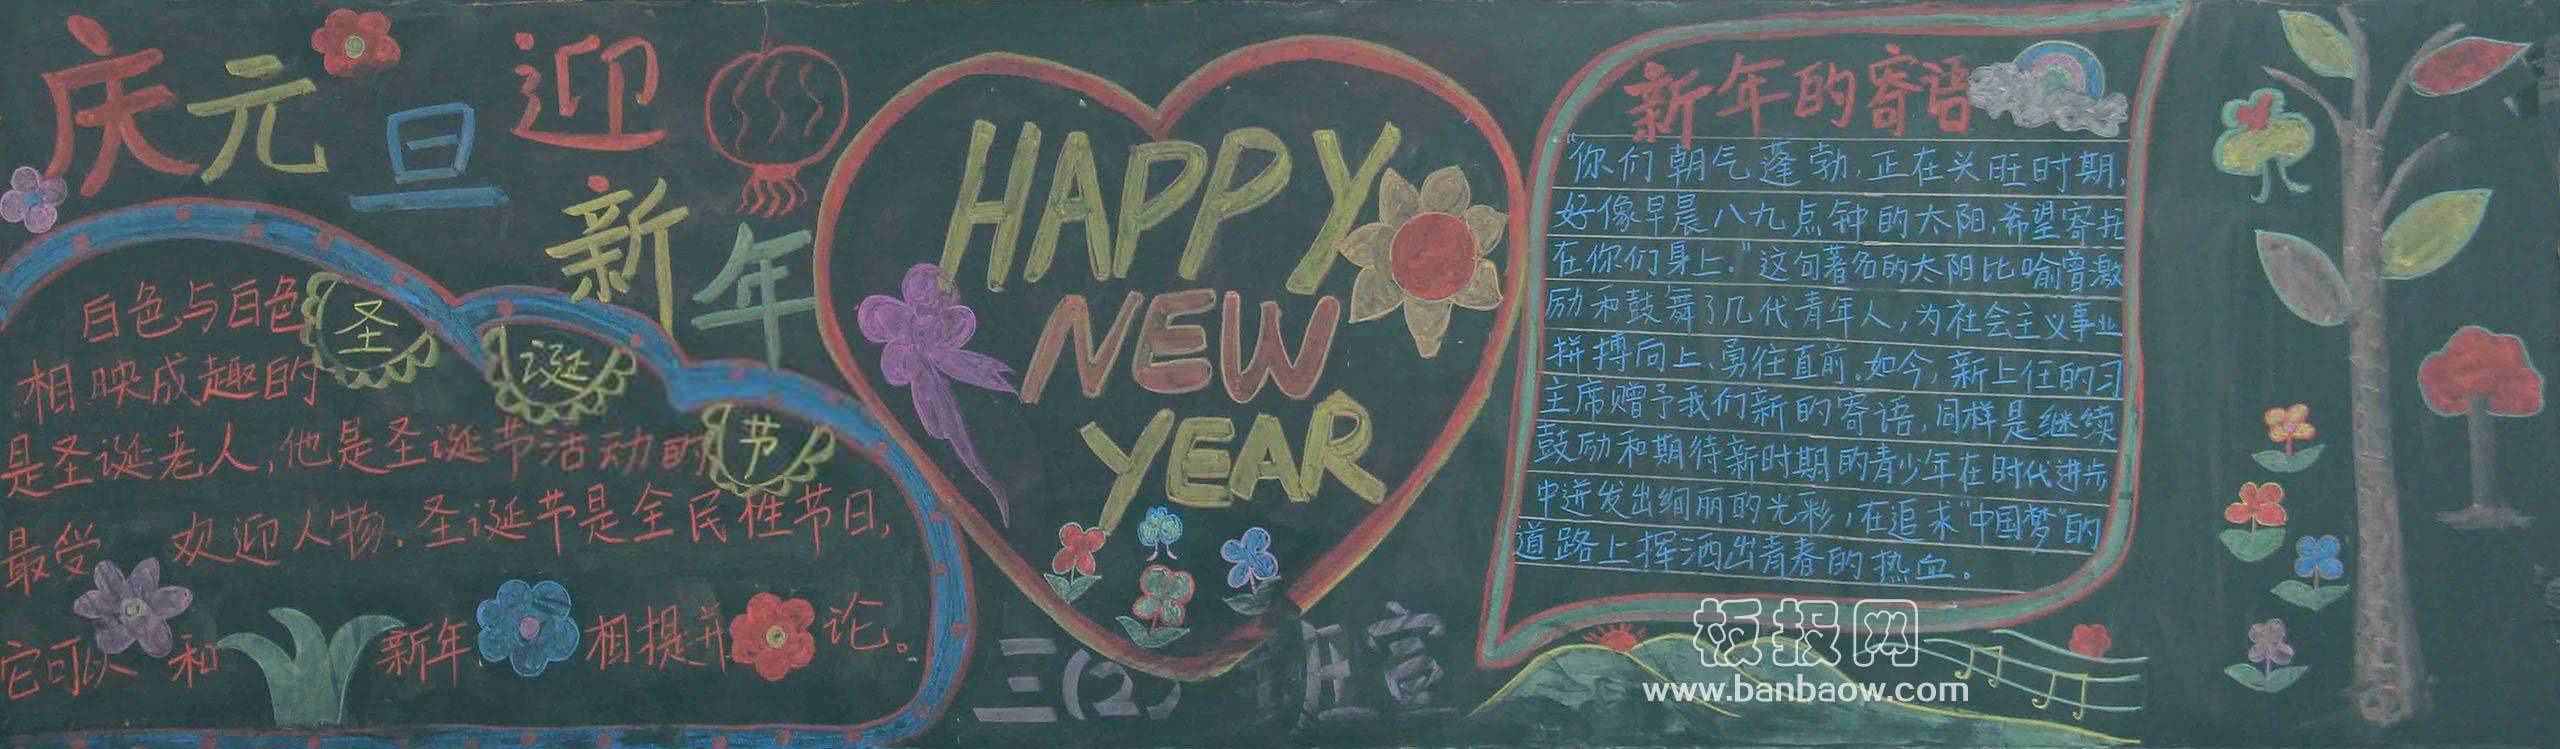 庆元旦迎
新年
圣诞节
白色与白色
相映成趣的
是圣诞老人,他是圣诞节活动的
最受 欢迎人物.圣诞节是全民性节日,
它可以 和 新年 相提并 论。
HAPPY
NEW
YEAR
三(2) 班宣
新年的寄语
“你们朝气蓬勃,正在兴旺时期,
好像早晨八九点钟的太阳,希望寄托
在你们身上.”这句著名的太阳比喻曾激
励和鼓舞了几代青年人,为社会主义事业
拼搏向上、勇往直前。如今,新上任的习
主席赠予我们新的寄语,同样是继续
鼓励和期待新时期的青少年在时代进步
中迸发出绚丽的光彩,在追求“中国梦”的
道路上挥洒出青春的热血。
板报网
www.banbaow.com